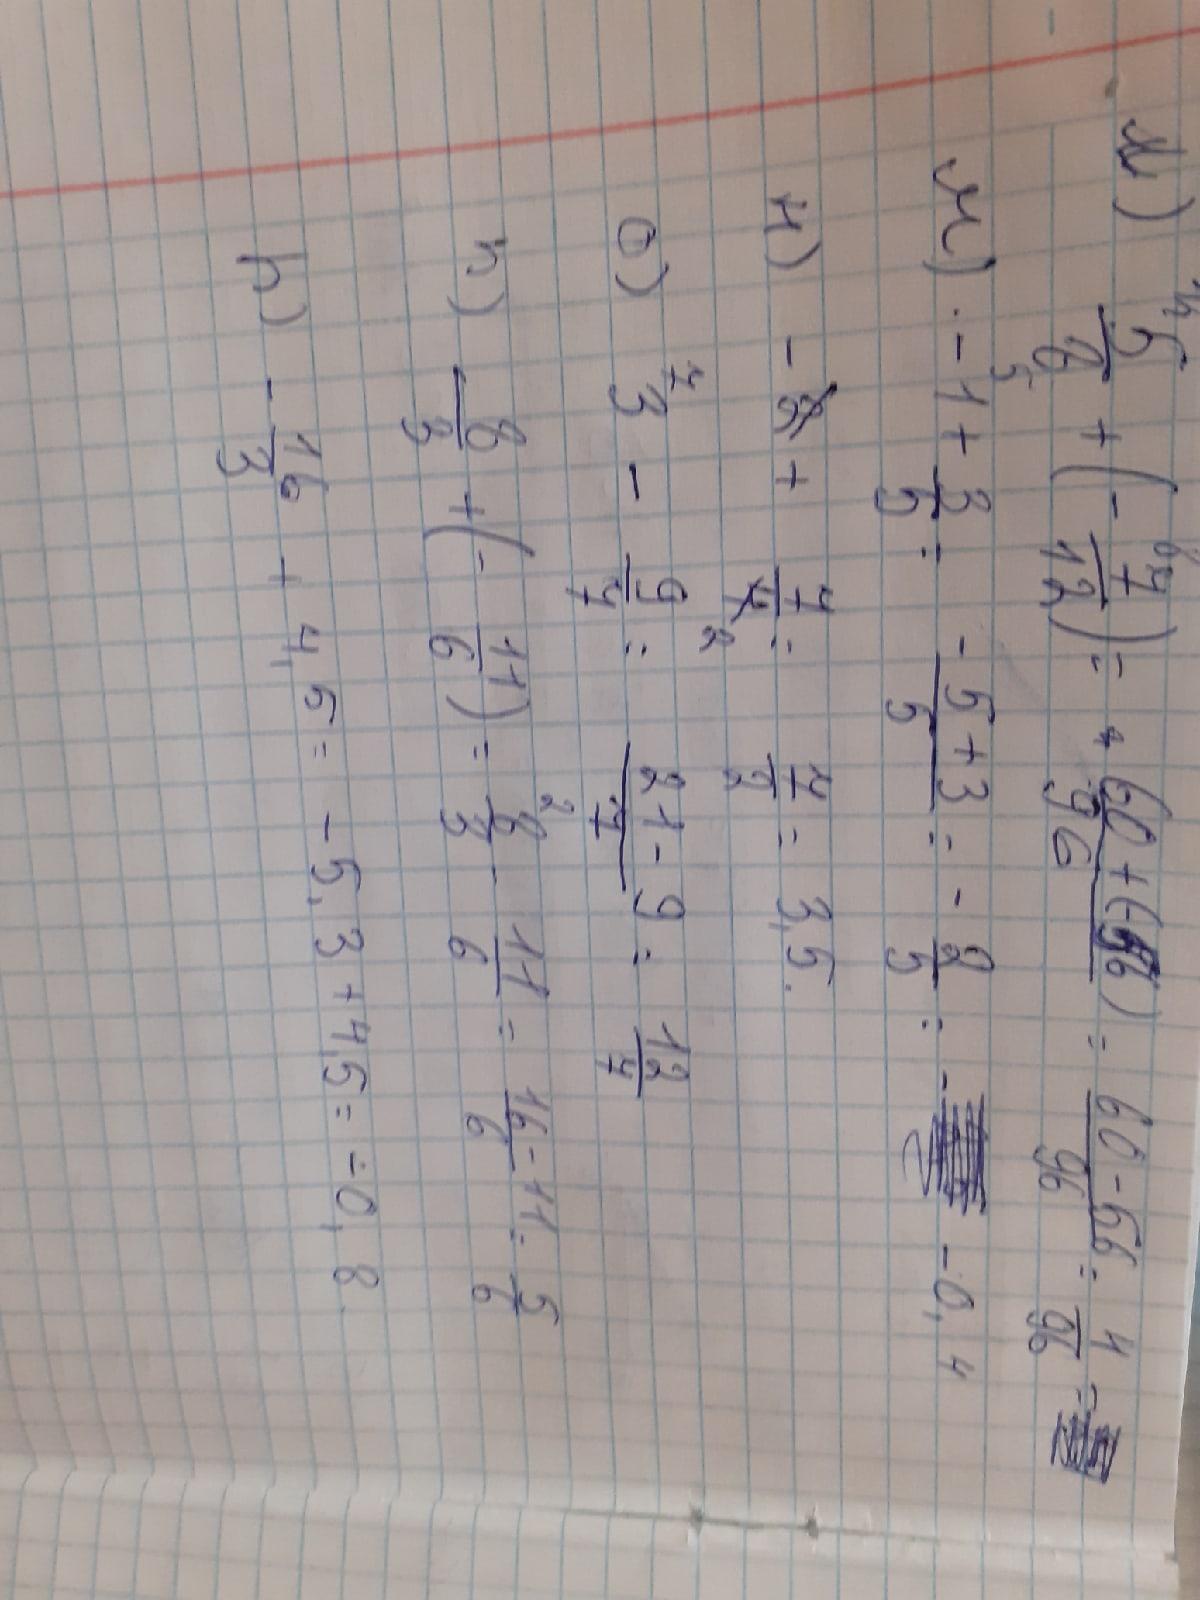 л) 5/8 + (-7/12) = 60+(-56)/96 = 60-56/96 = 4/96 =
м) -1 + 3/5 = -5+3/5 = -2/5 = - -0,4
н) -8 + 7/4 = 7/2 = 3,5.
о) 3 - 9/7 = 21-9/7 = 12/7
п) 8/3 + (-11/6) = 8/3 - 11/6 = 16-11/6 = 5/6
р) -16/3 + 4,5 = -5,3+4,5 = -0,8